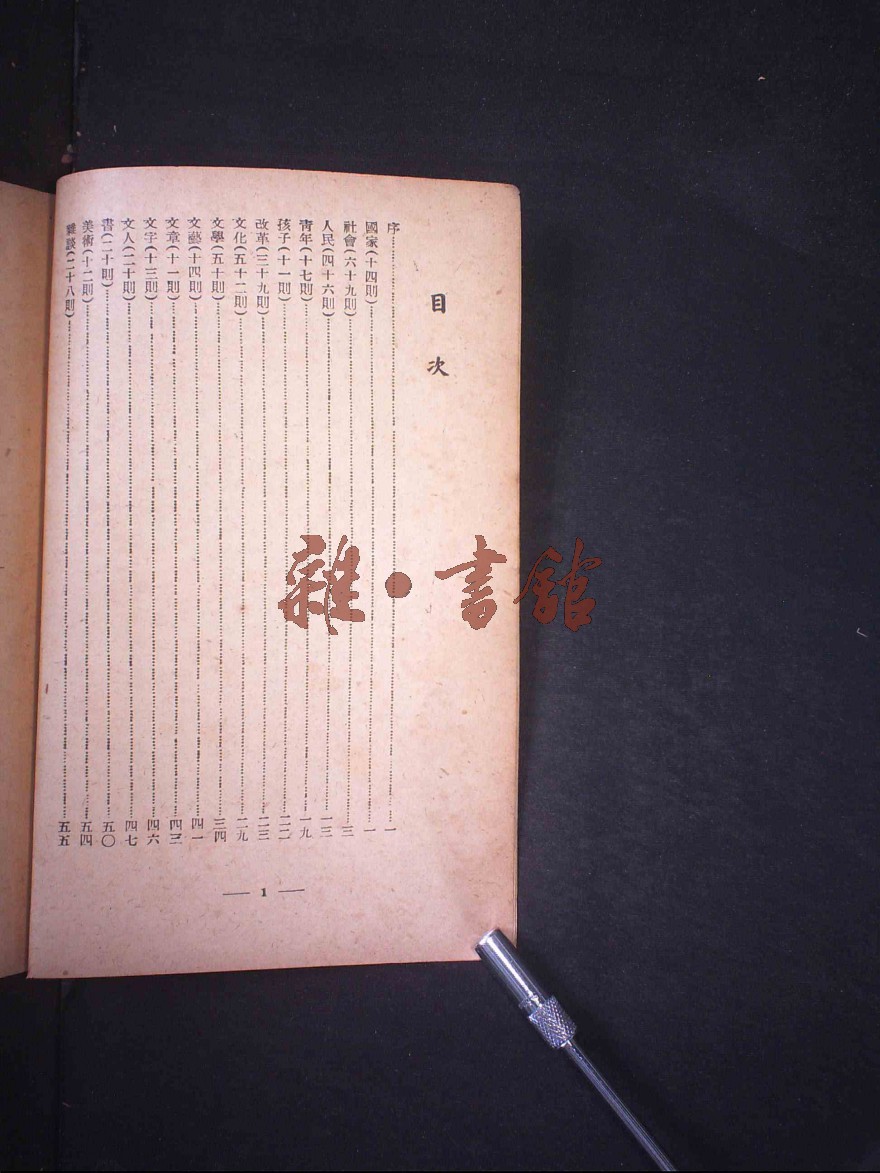 目次
序 一
國家(十四則) 一
社會(六十九則) 三
人民(四十六則) 一三
青年(十七則) 一九
孩子(十一則) 二二
改革(三十九則) 二三
文化(五十二則) 二九
文學(五十則) 三四
文藝(十四則) 四一
文章(十一則) 四三
文字(十三則) 四六
文人(二十則) 四七
書(二十則) 五〇
美術(十二則) 五四
雜談(二十八則) 五五
— 1 —
雜·書館